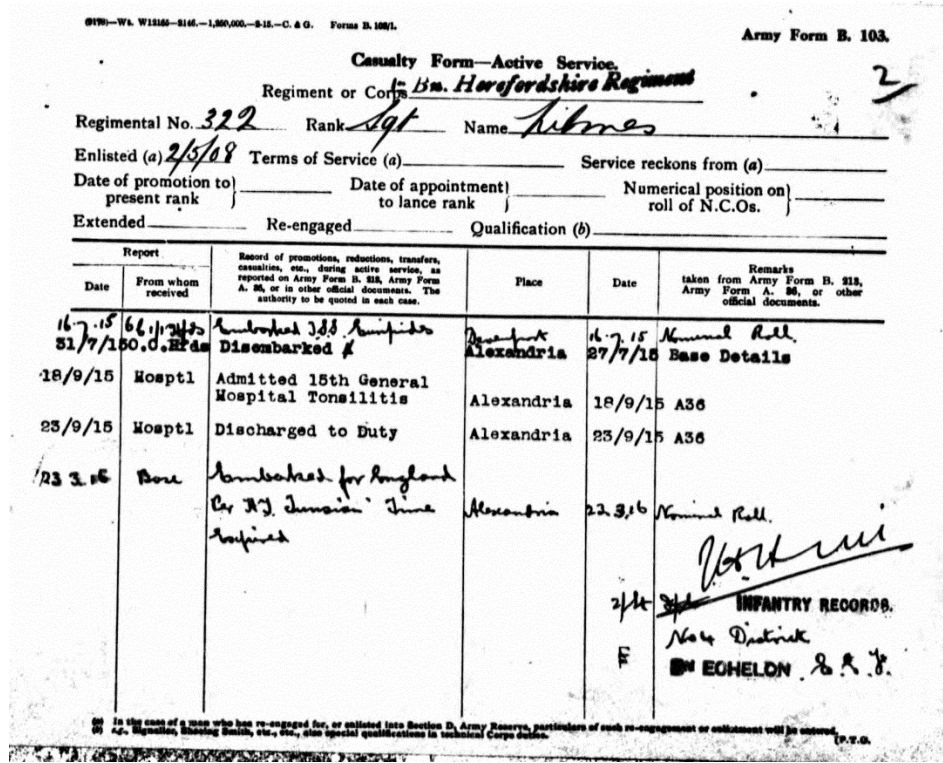 (9178)—Ws. W12165—2146.—1,250,000.—2-15.—C. & G. Forms B. 103/1.
Army Form B. 103.
Casualty Form—Active Service.
2
Regiment or Corps Bn. Herefordshire Regiment
Regimental No. 322 Rank Sgt Name
Enlisted (a) 2/5/08 Terms of Service (a) Service reckons from (a)
Date of promotion to present rank
Date of appointment to lance rank
Numerical position on roll of N.C.Os.
Extended Re-engaged Qualification (b)
Report
Date
From whom received
Record of promotions, reductions, transfers, casualties, etc., during active service, as reported on Army Form B. 213, Army Form A. 36, or in other official documents. The authority to be quoted in each case.
Place
Date
Remarks
taken from Army Form B. 213, Army Form A. 36, or other official documents.
16.7.15 Embarked Devonport 16.7.15 Nominal Roll.
31/7/15 O.C.Hfds Disembarked Alexandria 27/7/15 Base Details
18/9/15 Hosptl Admitted 15th General
Hospital Tonsilitis Alexandria 18/9/15 A36
23/9/15 Hosptl Discharged to Duty Alexandria 23/9/15 A36
23 3.16 Base Embarked for England
Per Tunsian" Time Alexandria 22.3.16 Nominal Roll.
Expired
INFANTRY RECORDS.
No 4 District
ECHELON
(a) In the case of a man who has re-engaged for, or enlisted into Section D, Army Reserve, particulars of such re-engagement or enlistment will be entered.
(b) e.g., Signaller, Shoeing Smith, etc., etc., also special qualifications in technical Corps duties.
[P.T.O.